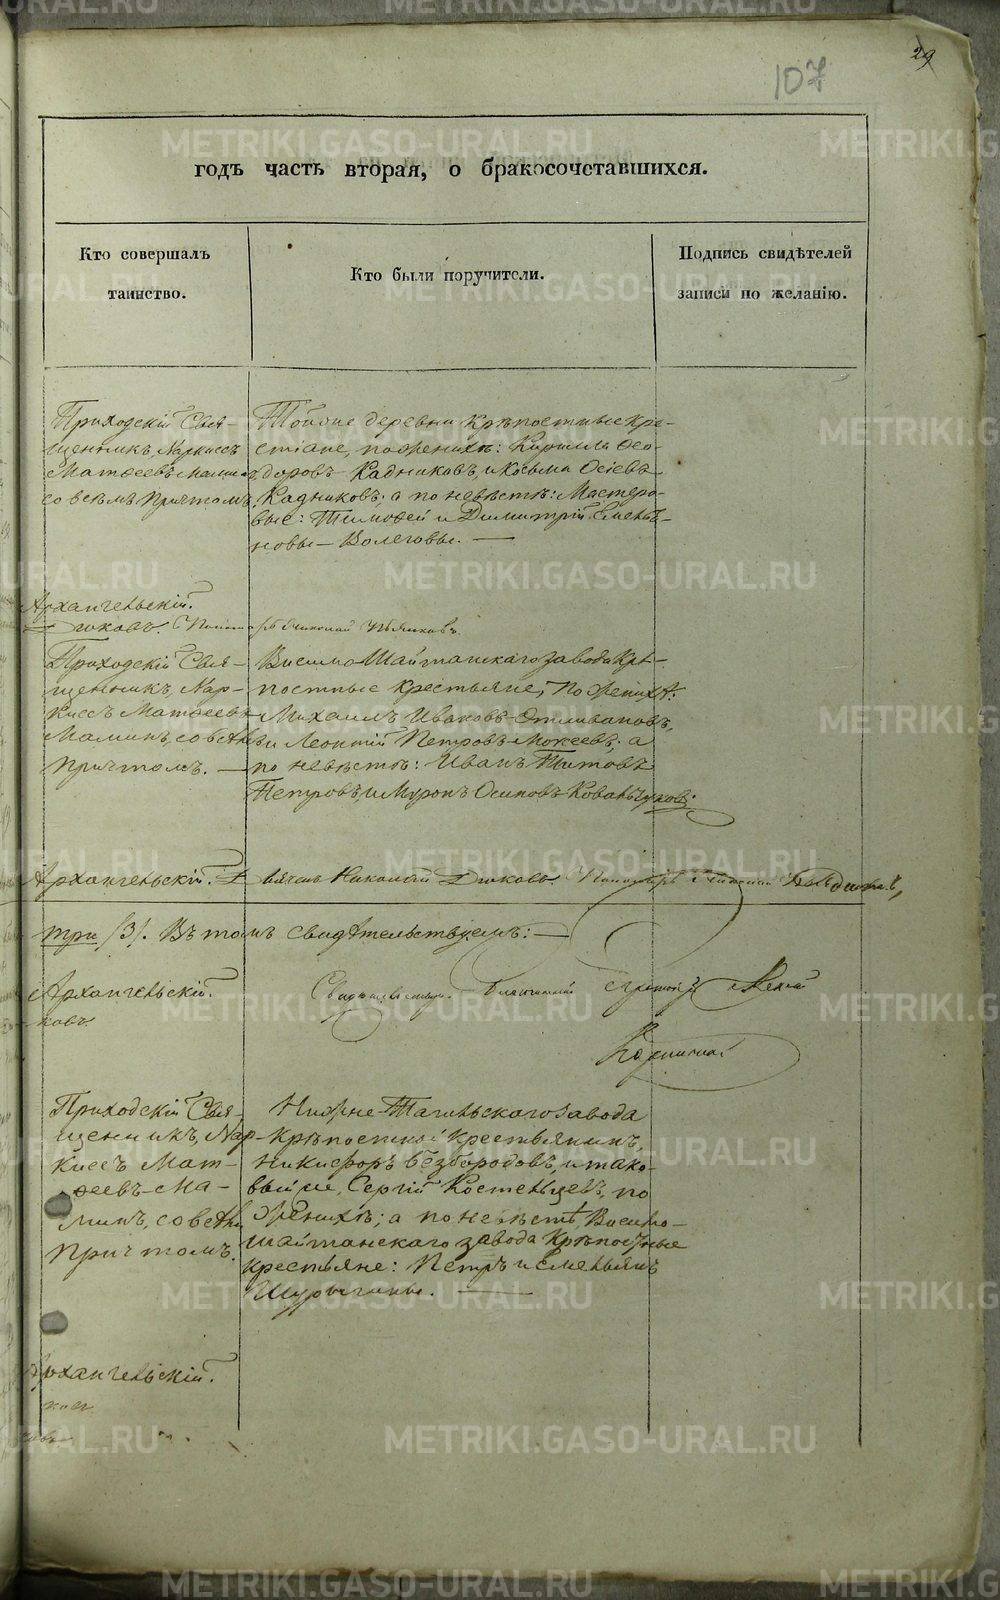 29
107
годъ часть вторая, о бракосочетавшихся.
Кто совершалъ
таинство.
Кто были поручители.
Подпись свидѣтелей
записи по желанію.
Приходскій Свя-
щенникъ Наркиссъ
Матѳеевъ Маминъ
со всѣмъ Причтомъ.
Тойже деревни крѣпостные кре-
стіане, по женихѣ: Кириллъ Ѳео-
доровъ Кадниковъ, и Козьма Осіевъ
Кадниковъ; а по невѣстѣ: Мастеро-
вые: Тимофей и Димитрій Емелья-
новы Волеговы. —
Архангельскій.
Дюковъ. Николай
Приходскій Свя-
щенникъ Нар-
киссъ Матѳеевъ
Маминъ, со всѣмъ
Причтомъ. —
Висимо-Шайтанскаго завода Крѣ-
постные крестьяне, По женихѣ:
Михаилъ Ивановъ Отливановъ,
и Леонтій Петровъ Мокеевъ; а
по невѣстѣ: Иванъ Титовъ
Петровъ, и Миронъ Осиповъ Ковальчуковъ.
Архангельскій. Николай Дюковъ. Пономарь
три /3/. Въ томъ свидѣтельствуемъ: —
Архангельскій.
ковъ.
Благочинный
Приходскій Свя-
щенникъ, Нар-
киссъ Мат-
ѳеевъ Ма-
минъ, со всѣмъ
Причтомъ.
Нижне-Тагильскаго завода
Крѣпостной Крестьянинъ,
Никифоръ Безбородовъ, и тако-
вый же, Сергій Костенцевъ, по
женихѣ; а по невѣстѣ, Висимо-
шайтанскаго завода Крѣпостные
крестьяне: Петръ и Емельянъ
Шурыгины. —
Архангельскій.